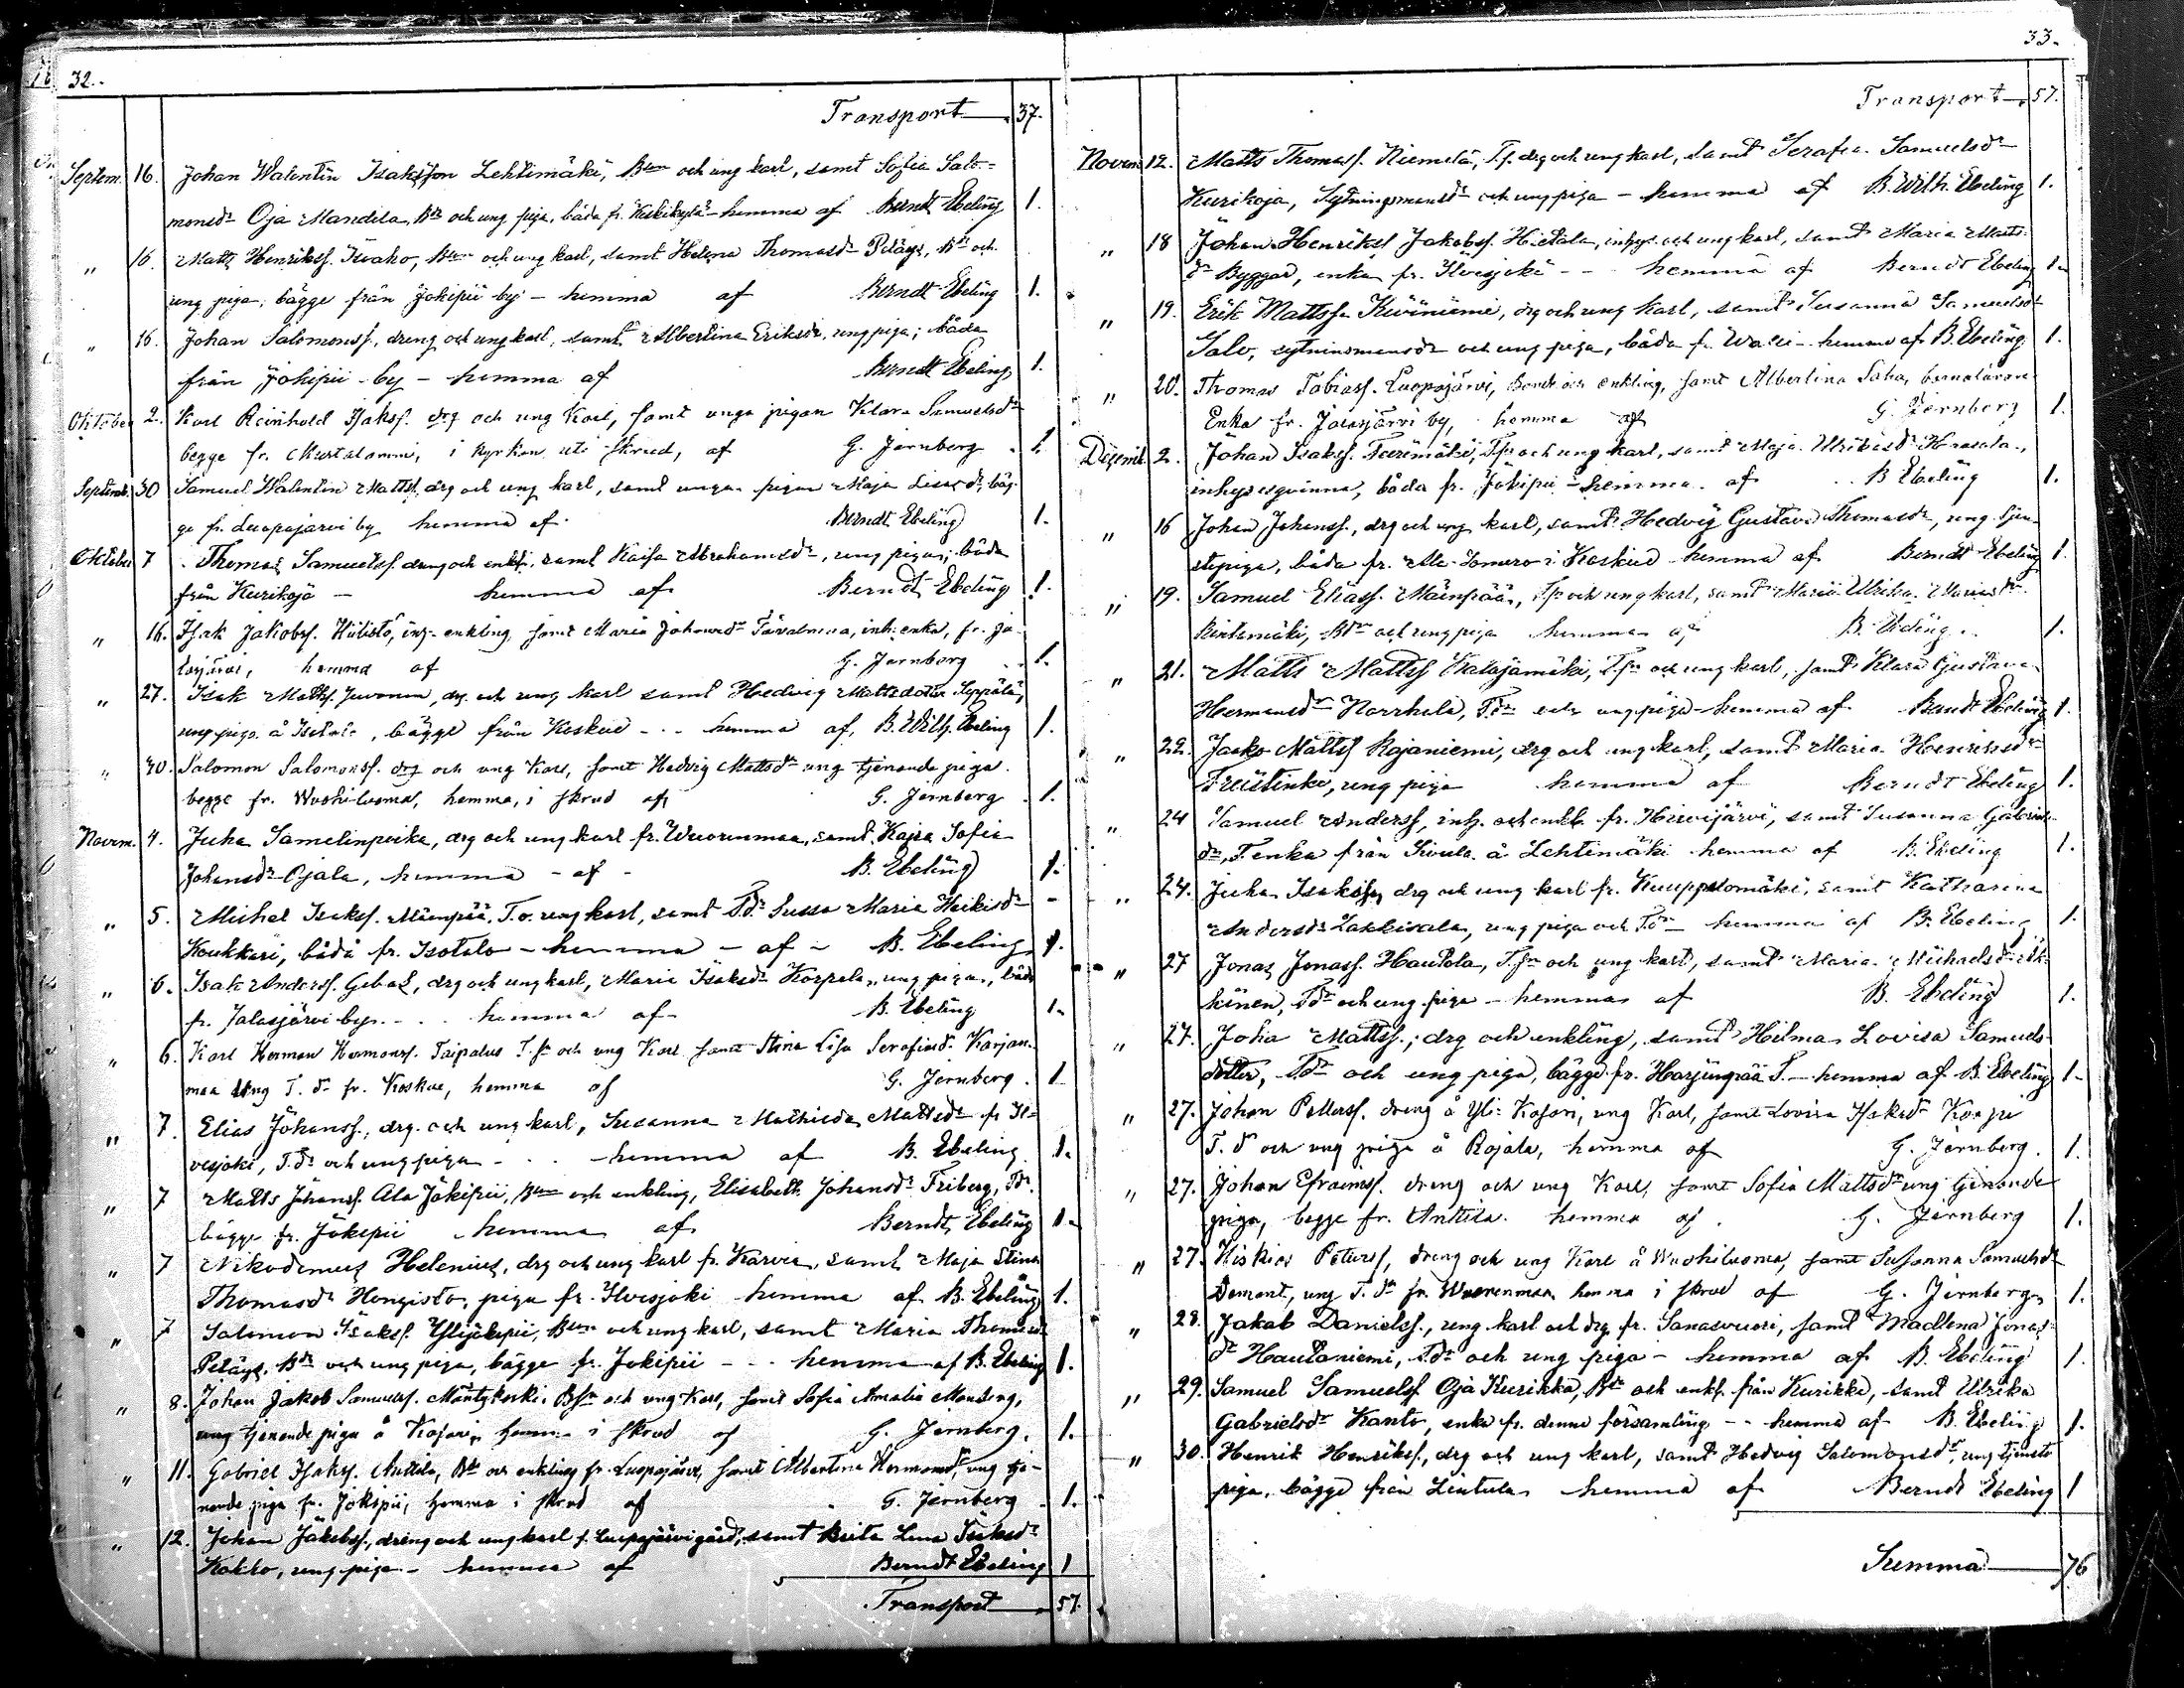 32.
Transport 37.
Septem. 16. Johan Walentin Isaksson Lehtimäki, Bson och ung karl, samt Sofia Salo=
monsdr Oja Mandila, Bdr och ung piga, båda fr. Keskikylä - hemma af Berndt Ebeling 1.
" 16. Matts Henrikss. Iivaho, Bson och ung karl, samt Helena Thomasdr Peläys, Bdr och
ung piga, bägge från Jokipii by - hemma af Berndt Ebeling 1.
" 16. Johan Salomonss., dreng och ung karl, samt Albertina Eriksdr, ung piga; båda
från Jokipii by - hemma af Berndt Ebeling 1.
Oktober 2. Karl Reinhold Isakss. drg och ung Karl, samt unga pigan Klara Samuelsdr
begge fr. i kyrkan uti skrud, af G. Jernberg 1.
Septemb. 30 Samuel Walentin Mattss. drg och ung karl, samt unga pigan Maja Lisa dr, bäg-
ge fr. Luopajärvi by hemma af Berndt Ebeling 1.
Oktober 7. Thomas Samuelss. dreng och enkl., samt Kaisa Abrahamsdr, ung piga; båda
från Kurikoja - hemma af Berndt Ebeling 1.
" 16. Isak Jakobss. Hiilistö, inh. enkling, samt Maria Johansdr inh. enka, fr. Ja-
lasjärvi, hemma af G. Jernberg 1.
" 27. Isak Mattss. Juvonen, drg. och ung karl samt Hedvig Mattsdotter Seppälä,
ung piga å Isotalo, bägge från Koskue - - hemma af B. Wilh. Ebeling 1.
" 30. Salomon Salomonss. drg och ung Karl, samt Hedvig Mattsdr ung tjenande piga
begge fr. Wuohiluoma, hemma, i skrud af G. Jernberg 1.
Novem. 4. Juha Samelinpoika, drg och ung karl fr. Wuorenmaa, samt Kajsa Sofia
Johansdr Ojala, hemma - af - B. Ebeling 1.
" 5. Michel Isakss. Mäenpää, T. o. ung karl, samt T.dr Sussa Maria Heikisdr
Koukkari, båda fr. Isotalo - hemma - af - B. Ebeling 1.
" 6. Isak Anderss. drg och ung karl, Maria Isaksdr Korpela, ung piga, båda
fr. Jalasjärvi by - - hemma af B. Ebeling 1.
" 6. Karl Herman Hermanss. Taipalus T.sn och ung Karl samt Stina Lisa Serafiasdr Karjan-
maa ung T.dr fr. Koskue, hemma af G. Jernberg. 1.
" 7. Elias Johanss., drg. och ung karl, Susanna Mathilda Mattsdr fr. Il-
vesjoki, T.dr och ung piga - - hemma af B. Ebeling. 1.
" 7 Matts Johanss. Ala Jokipii, Bson och enkling, Elisabeth Johansdr Friberg, Tdr.
bägge fr. Jokipii hemma af Berndt Ebeling 1.
" 7 Nikodemus Helenius, drg och ung karl fr. Karvia, samt Maja Stina
Thomasdr Hongisto, piga fr. Ilvesjoki hemma af B. Ebeling 1.
" 7 Salomon Isakss. Ylijokipii, Bson och ung karl, samt Maria Thomasdr
Peläys, Bdr och ung piga, bägge fr. Jokipii - - hemma af B. Ebeling 1.
" 8. Johan Jakob Samuelss. Mäntykoski, Bsn och ung Karl, samt Sofia Amalia
ung tjenande piga å Kosari, hemma i skrud af G. Jernberg. 1.
" 11. Gabriel Isakss. Anttila, Bdr och enkling fr. Luopajärvi, samt Albertina Hermansdr, ung tje-
nande piga fr. Jokipii, hemma i skrud af G. Jernberg 1.
" 12. Johan Jakobss., dreng och ung karl f. Luopajärvi gård, samt Brita Lena Isaksdr
Kokko, ung piga - hemma af Berndt Ebeling 1
Transport 57.
33.
Transport 57.
Novem. 12. Matts Thomass. Niemelä, T.s. drg och ung karl, samt Serafia Samuelsdr
Kurikoja, Sytningsmansdr och ung piga - hemma af B. Wilh. Ebeling 1.
" 18 Johan Henrikss Jakobss. Hietala, inhys. och ung karl, samt Maria Matts-
dr Byggar, enka fr. Ilvesjoki - - hemma af Berndt Ebeling 1.
" 19. Erik Mattsson Kiviniemi, drg och ung karl, samt Susanna Samuelsdr
Salo, sytninsmansdr och ung piga, båda fr. - hemma af B. Ebeling 1.
" 20. Thomas Tobiass. Luopajärvi, Bonde och enkling, samt Albertina Saha, bondaränn
Enka fr. Jalasjärvi by, hemma af G. Jernberg 1.
Decemb. 2. Johan Isakss. T.sn och ung karl, samt Maja Ulrikasdr
inhysesqvinna, båda fr. Jokipii - hemma af B Ebeling 1.
" 16 Johan Johanss., drg och ung karl, samt Hedvig Gustava Thomasdr, ung tjen-
stepiga, båda fr. Ala-Somero i Koskue hemma af Berndt Ebeling 1.
" 19. Samuel Eliass. Mäenpää, T.sn och ung karl, samt Maria Ulrika Mariasdr
Rintamäki, Bdr och ung piga hemma af B. Ebeling. 1.
" 21. Matts Mattss Kalajamäki, T.sn och ung karl, samt Klara Gustava
Hermansdr Norrkela, T.dr och ung piga - hemma af Berndt Ebeling 1.
" 22. Jaako Mattss Rajaniemi, drg och ung karl, samt Maria Henriksdr
ung piga hemma af Berndt Ebeling 1.
" 24 Samuel Anderss, inh. och enkl. fr. Hirvijärvi, samt Susanna Gabriels-
dr, T. enka från Sivula å Lehtimäki hemma af B. Ebeling 1.
" 24. Juha Isaksson drg och ung karl fr. Kuuppalomäki, samt Katharina
Andersdr ung piga och T.dr - hemma af B. Ebeling 1.
" 27 Jonas Jonass. Hautala, T.sn och ung karl, samt Maria Michaelsdr Ik-
känen, Tdr och ung piga - hemma af B. Ebeling 1.
" 27. Joha Mattss.; drg och enkling, samt Hilma Lovisa Samuels-
dotter, Tdr och ung piga, bägge fr. Harjunpää T. - hemma af B. Ebeling 1-
" 27. Johan Petterss. dreng å Yli-Kosari, ung Karl, samt Lovisa Isaksdr Korpi
T.dr och ung piga å Rajala, hemma af G. Jernberg. 1.
" 27. Johan Efraimss. dreng och ung Karl, samt Sofia Mattsdr ung tjenande
piga, begge fr. Anttila. hemma af G. Jernberg 1.
" 27. Hiskias Peterss, dreng och ung Karl å Wuohiluoma, samt Susanna Samuelsdr
Demant, ung T.dr fr. Wuorenmaa hemma i skrud af G. Jernberg 1.
" 28. Jakob Danielss., ung karl och drg. fr. Sanasvuori, samt Madlena Jonas-
dr Hautaniemi, T.dr och ung piga - hemma af B. Ebeling 1.
" 29. Samuel Samuelss Oja Kurikka, Bdr och enkl. från Kurikka, samt Ulrika
Gabrielsdr Kanto, enka fr. denna församling - - hemma af B. Ebeling 1.
" 30. Henrik Henrikss., drg och ung karl, samt Hedvig Salomonsdr, ung tjenste
piga, bägge från Lintula hemma af Berndt Ebeling 1
Summa 76